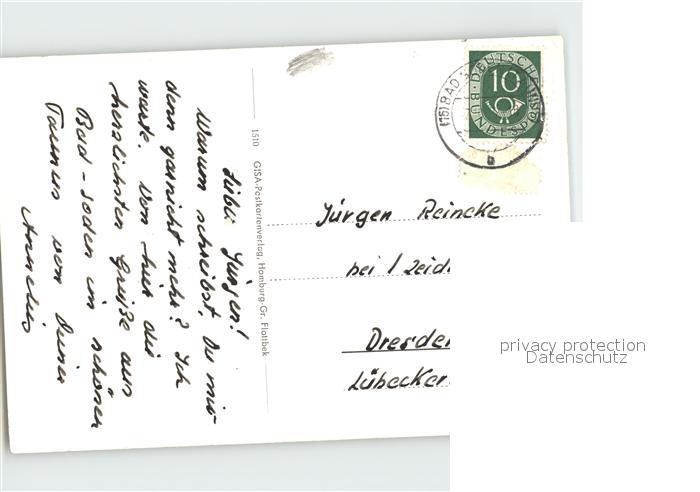 Lieber Jürgen!
Warum schreibst Du mir
denn garnicht mehr? Ich
warte. Von hier die
herzlichsten Grüße aus
Bad-Soden im schönen
Taunus von Deiner
1510 GISA-Postkartenverlag, Hamburg-Gr. Flottbek
(16) BAD
b
10
DEUTSCHE BUNDESPOST
Jürgen Reincke
bei
Dresden
Lübecker
privacy protection
Datenschutz